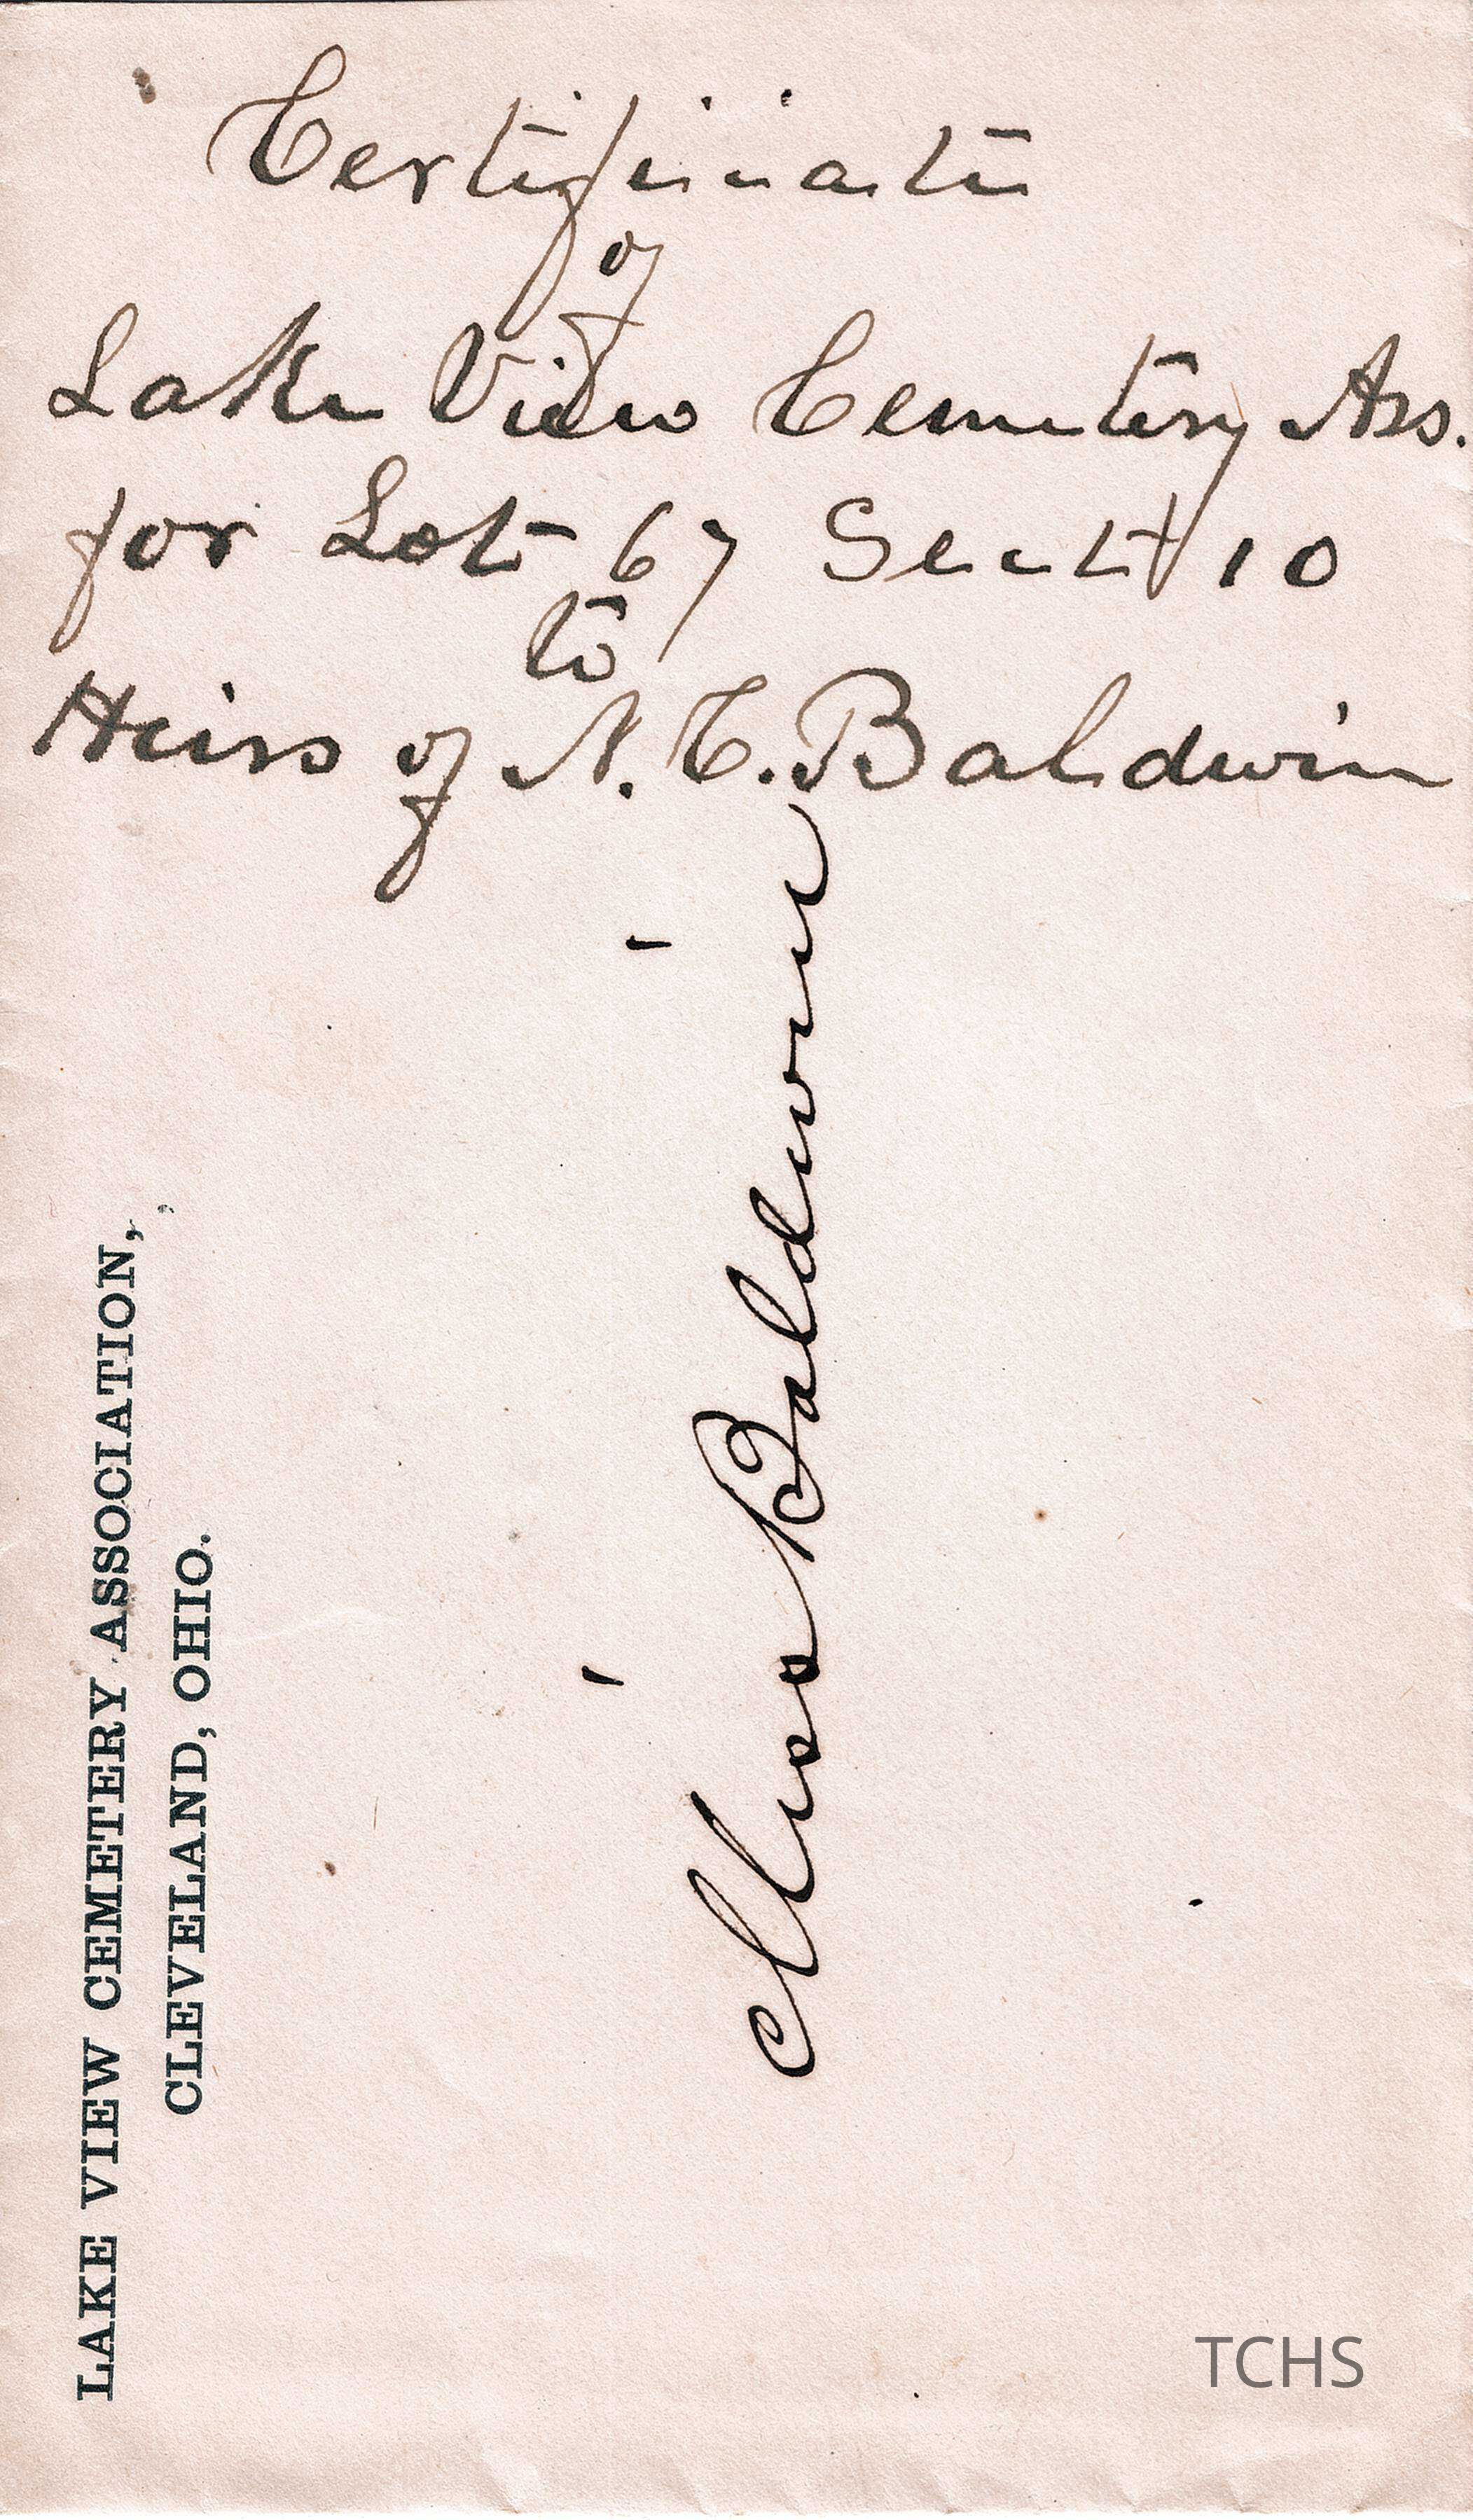 Certificate
of
Lake View Cemetery Ass.
for Lot 67 Sect 10
to
Heirs of N. C. Baldwin
Miss Baldwin
LAKE VIEW CEMETERY ASSOCIATION,
CLEVELAND, OHIO.
TCHS